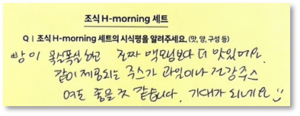 조식 H-morning 세트
Q | 조식 H-morning 세트의 시식평을 알려주세요. (맛, 양, 구성 등)
빵이 폭신폭신 하고 진짜 맥모닝보다 더 맛있어요.
같이 제공되는 쥬스가 과일이나 건강쥬스
여도 좋을 것 같습니다. 기대가 되네요